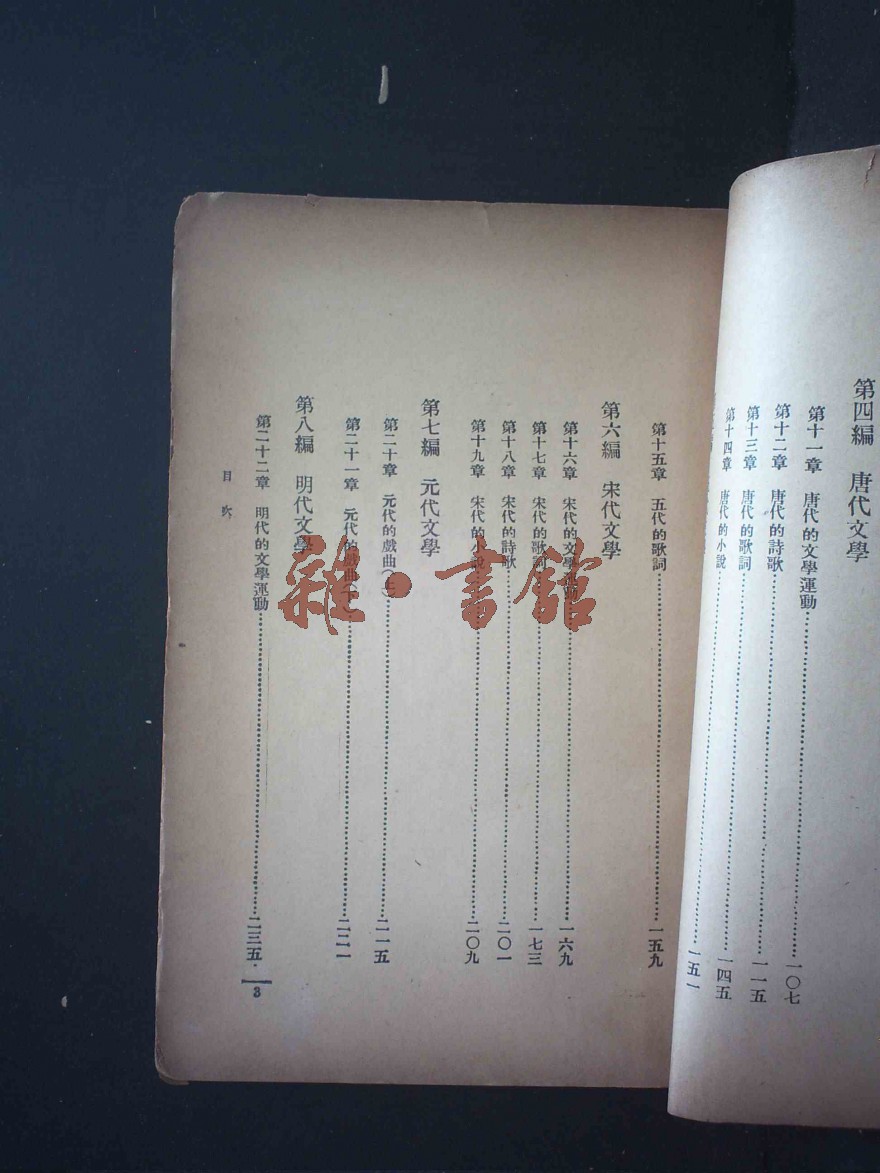 第四編 唐代文學
第十一章 唐代的文學運動……一〇七
第十二章 唐代的詩歌……一一五
第十三章 唐代的歌詞……一四五
第十四章 唐代的小說……一五一
第十五章 五代的歌詞……一五九
第六編 宋代文學
第十六章 宋代的文學運動……一六九
第十七章 宋代的歌詞……一七三
第十八章 宋代的詩歌……二〇一
第十九章 宋代的小說……二〇九
第七編 元代文學
第二十章 元代的戲曲(上)……二一五
第二十一章 元代的戲曲(下)……二二一
第八編 明代文學
第二十二章 明代的文學運動……二三五
目次
3
雜·書館